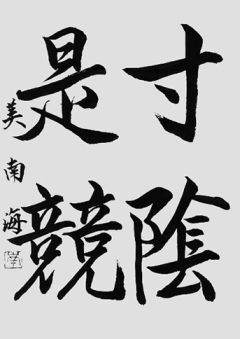 寸陰
是競
美南海